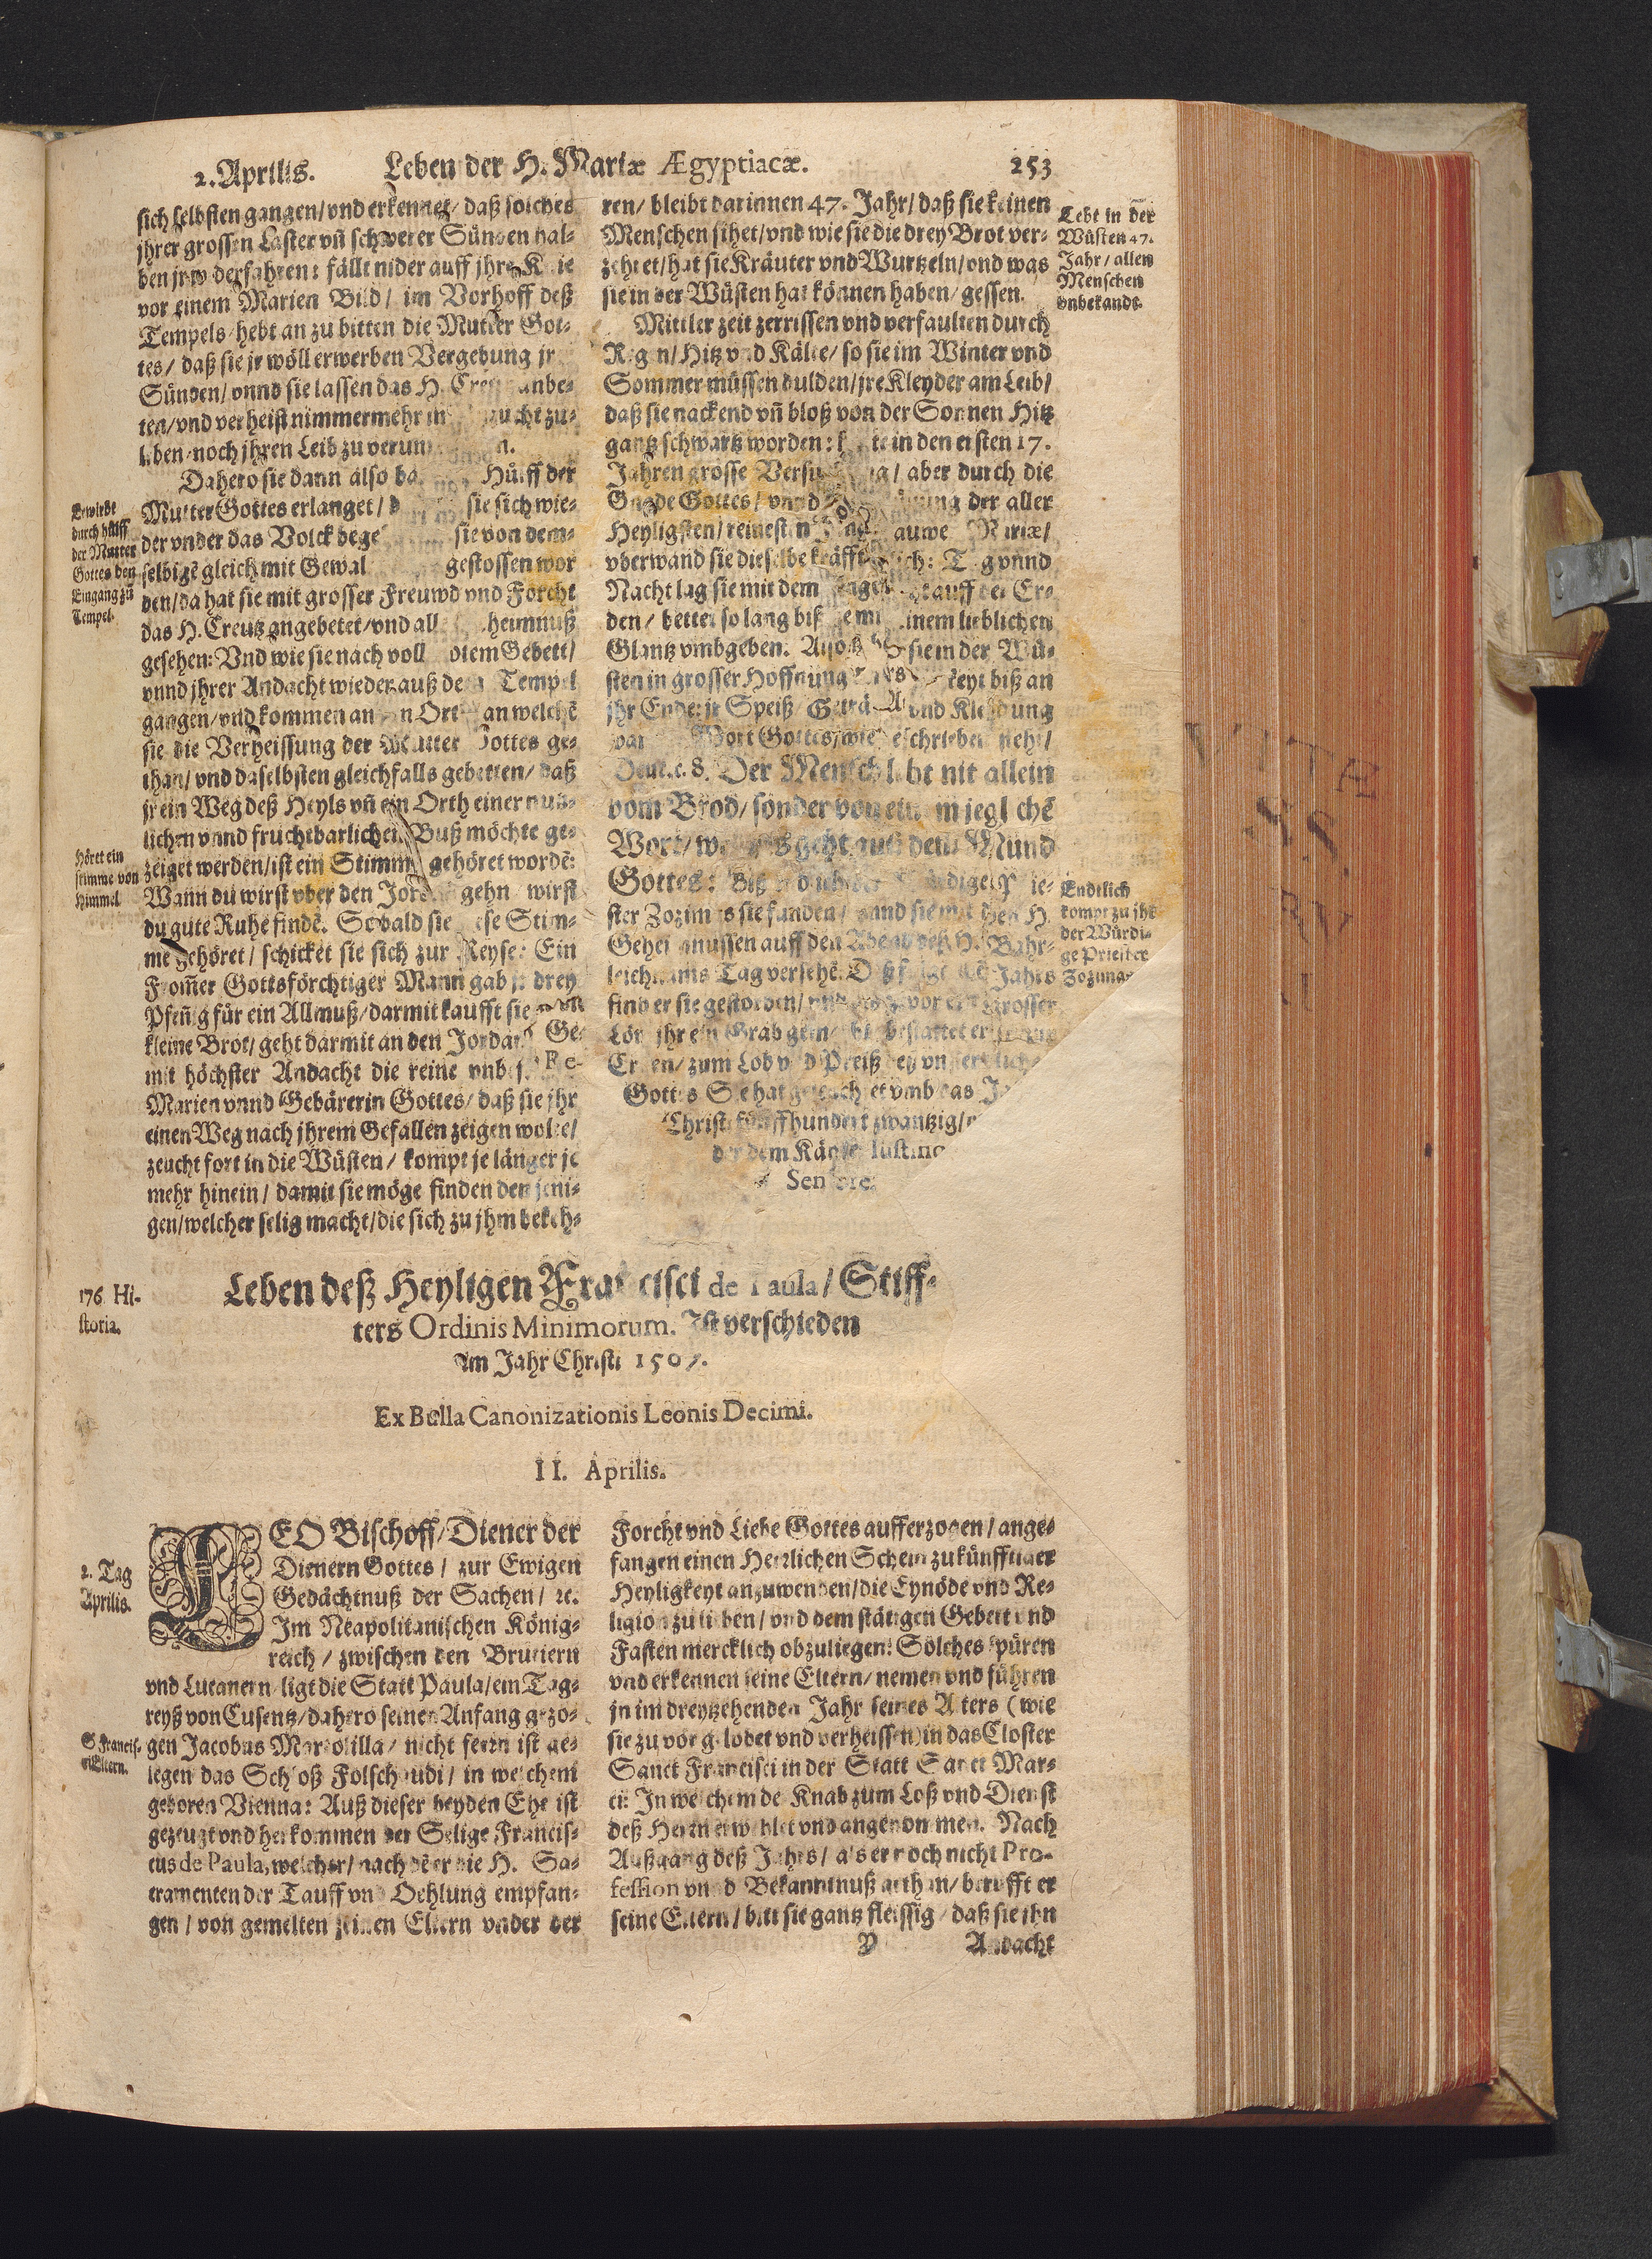 2. Aprilis. Leben der H. Mariæ Ægyptiacæ. 253
sich selbsten gangen/ vnd erkennet/ daß solches
jhrer grossen Laster vñ schwerer Sünden hal-
ben jr widerfahren: fällt nider auff jhre Knie
vor einem Marien Bild/ im Vorhoff deß
Tempels/ hebt an zu bitten die Mutter Got-
tes/ daß sie jr wöll erwerben Vergebung jr
Sünden/ vnnd sie lassen das H. Creutz anbe-
ten/ vnd verheist nimmermehr in zucht zu-
leben/ noch jhren Leib zu verun n.
Dahero sie dann also Hülff der
Mutter Gottes erlanget/ sie sich wie-
der vnder das Volck bege sie von dem-
selbigē gleich mit Gewal gestossen wor
den/ da hat sie mit grosser Freuwd vnd Forcht
das H. Creutz angebetet/ vnd all heimnuß
gesehen: Vnd wie sie nach voll Gebett/
vnnd jhrer Andacht wieder auß dem Tempel
gangen/ vnd kommen an Ort an welchē
sie die Verheissung der Mutter Gottes ge-
than/ vnd daselbsten gleichfalls gebetten/ daß
jr ein Weg deß Heyls vñ ein Orth einer nutz-
lichen vnnd fruchtbarlichen Buß möchte ge-
zeiget werden/ ist ein Stimm gehöret wordē:
Wann du wirst vber den Jordan gehn wirst
du gute Ruhe findē. Sobald sie Stim-
me gehöret/ schicket sie sich zur Reyse: Ein
Frommer Gottsförchtiger Mann gab jr drey
Pfenig für ein Allmuß/ darmit kaufft sie
kleine Brot/ geht darmit an den Jordan Ge-
mit höchster Andacht die reine vnbe
Marien vnnd Gebärerin Gottes/ daß sie jhr
einen Weg nach jhrem Gefallen zeigen wolte/
zeucht fort in die Wüsten/ kompt je länger je
mehr hinein/ damit sie möge finden den jeni-
gen/ welcher selig macht/ die sich zu jhm bekeh-
Bewirbt
durch hülff
der Mutter
Gottes den
Eingang zū
Tempel.
Höret ein
stimme von
Himmel
ren/ bleibt darinnen 47. Jahr/ daß sie keinen
Menschen sihet/ vnd wie sie die drey Brot ver-
zehret/ hat sie Kräuter vnd Wurtzeln/ vnd was
sie in der Wüsten hat können haben/ gessen.
Mittler zeit zerrissen vnd verfaulten durch
Regen/ Hitz vnd Kälte/ so sie im Winter vnd
Sommer müssen dulden/ jre Kleyder am Leib/
daß sie nackend vñ bloß von der Sonnen Hitz
gantz schwartz worden: in den ersten 17.
Jahren grosse Versuchung/ aber durch die
Gnade Gottes/ vnnd der aller
Heyligsten/ reinesten auwe Mariæ/
vberwand sie dieselbe kräfftiglich: Tag vnnd
Nacht lag sie mit dem auff der Er-
den/ bettet so lang biß einem lieblichen
Glantz vmbgeben. Also sie in der Wü-
sten in grosser Hoffnung keyt biß an
jhr Ende: jr Speiß vnd Kleydung
war Wort Gottes/ wie geschrieben steht/
Deut. c. 8. Der Mensch lebt nit allein
vom Brod/ sonder von einem jeglichē
Wort/ geht auß dem Mund
Gottes: Biß
ster Zozimas sie funden/ vnnd sie mit den H.
Geheimnussen auff den
leichnams Tag versehē. Jahrs
find er sie gestorben/ grosser
Löw jhr ein Grab bestattet er
Ehren/ zum Lob vnd Preiß
Gottes Sie hat vmb das
Christi fünffhundert zwantzig/
dem Käyser Iustino
Seniore.
Lebt in der
Wüsten 47.
Jahr/ allen
Menschen
vnbekandt.
Endtlich
kompt zu jhr
der Würdi-
ge Priester
Zozimas
176. Hi-
storia.
Leben deß Heyligen Francisci de Paula/ Stiff-
ters Ordinis Minimorum. Ist verschieden
Im Jahr Christi 1507.
Ex Bulla Canonizationis Leonis Decimi.
II. Aprilis.
2. Tag
Aprilis.
LEO Bischoff/ Diener der
Dienern Gottes/ zur Ewigen
Gedächtnuß der Sachen/ ꝛc.
Im Neapolitanischen König-
reich/ zwischen den Brutiern
vnd Lucanern/ ligt die Statt Paula/ ein Tag-
reyß von Cusentz/ dahero seinen Anfang gezo-
gen Jacobus Martolilla/ nicht fern ist ge-
legen das Schloß Folschaudi/ in welchem
geboren Vienna: Auß dieser beyden Ehe ist
gezeugt vnd herkommen der Selige Francis-
cus de Paula, welcher/ nach dē er die H. Sa-
cramenten der Tauff vnd Oehlung empfan-
gen/ von gemelten seinen Eltern vnder der
S. Francis-
ci Eltern.
Forcht vnd Liebe Gottes aufferzogen/ ange-
fangen einen Herrlichen Schein zukünfftiger
Heyligkeyt anzuwenden/ die Eynöde vnd Re-
ligion zu lieben/ vnd dem stätigen Gebett vnd
Fasten mercklich obzuliegen: Solches spüren
vnd erkennen seine Eltern/ nemen vnd führen
jn im dreytzehenden Jahr seines Alters (wie
sie zuvor gelobet vnd verheissen) in das Closter
Sanct Francisci in der Statt Sanct Mar-
ci: In welchem de Knab zum Loß vnd Dienst
deß Herrn erwehlet vnd angenommen. Nach
Außgang deß Jahrs/ als er noch nicht Pro-
fession vnnd Bekanntnuß gethan/ berufft er
seine Eltern/ bitt sie gantz fleissig/ daß sie jhn
Y Andacht